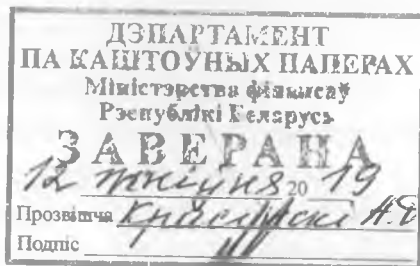 ДЭПАРТАМЕНТ
ПА КАШТОЎНЫХ ПАПЕРАХ
Міністэрства фінансаў
Рэспублікі Беларусь
ЗАВЕРАНА
12 20 19
Прозвішча
Подпіс